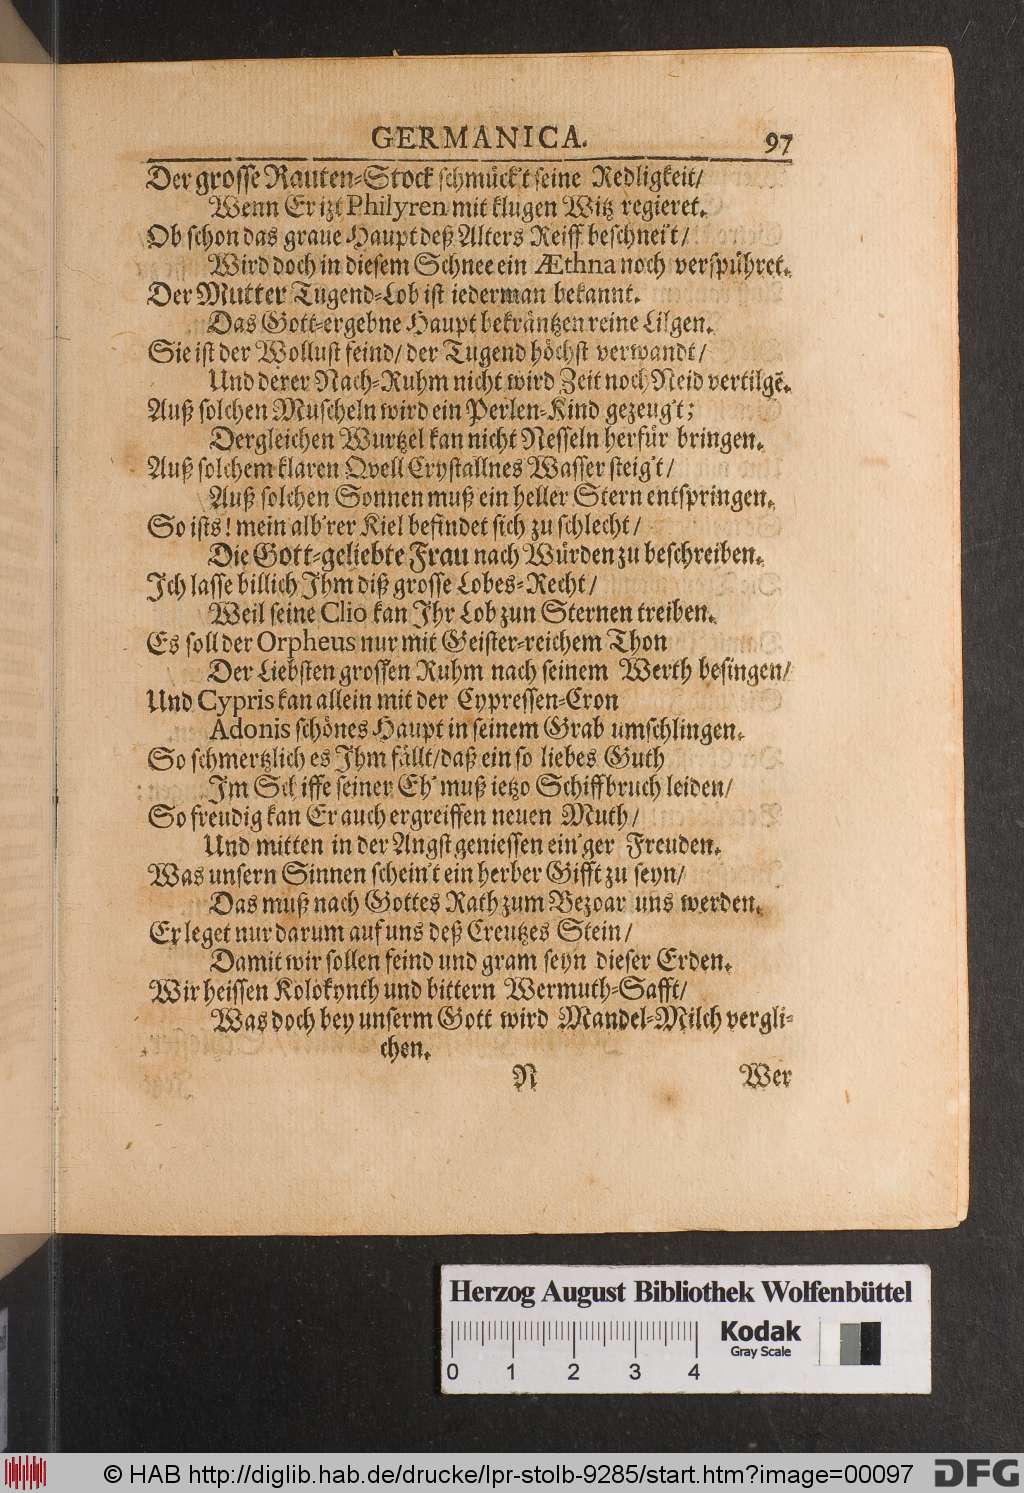 GERMANICA. 97
Der grosse Rauten-Stock schmück't seine Redligkeit/
Wenn Er izt Philyren mit klugen Witz regieret.
Ob schon das graue Haupt deß Alters Reiff beschnei't/
Wird doch in diesem Schnee ein Æthna noch verspühret.
Der Mutter Tugend-Lob ist iederman bekannt.
Das Gott-ergebne Haupt bekräntzen reine Lilgen.
Sie ist der Wollust feind/ der Tugend höchst verwandt/
Und derer Nach-Ruhm nicht wird Zeit noch Neid vertilgē.
Auß solchen Muscheln wird ein Perlen-Kind gezeug't;
Dergleichen Wurtzel kan nicht Nesseln herfür bringen.
Auß solchem klaren Qvell Crystallnes Wasser steig't/
Auß solchen Sonnen muß ein heller Stern entspringen.
So ists! mein alb'rer Kiel befindet sich zu schlecht/
Die Gott-geliebte Frau nach Würden zu beschreiben.
Ich lasse billich Ihm diß grosse Lobes-Recht/
Weil seine Clio kan Ihr Lob zun Sternen treiben.
Es soll der Orpheus nur mit Geister-reichem Thon
Der Liebsten grossen Ruhm nach seinem Werth besingen/
Und Cypris kan allein mit der Cypressen-Cron
Adonis schönes Haupt in seinem Grab umschlingen.
So schmertzlich es Ihm fällt/ daß ein so liebes Guth
Im Schiffe seiner Eh' muß ietzo Schiffbruch leiden/
So freudig kan Er auch ergreiffen neuen Muth/
Und mitten in der Angst geniessen ein'ger Freuden.
Was unsern Sinnen schein't ein herber Gifft zu seyn/
Das muß nach Gottes Rath zum Bezoar uns werden.
Er leget nur darum auf uns deß Creutzes Stein/
Damit wir sollen feind und gram seyn dieser Erden.
Wir heissen Kolokynth und bittern Wermuth-Safft/
Was doch bey unserm Gott wird Mandel-Milch vergli-
chen.
N Wer
Herzog August Bibliothek Wolfenbüttel
Kodak
Gray Scale
0 1 2 3 4
© HAB http://diglib.hab.de/drucke/lpr-stolb-9285/start.htm?image=00097 DFG